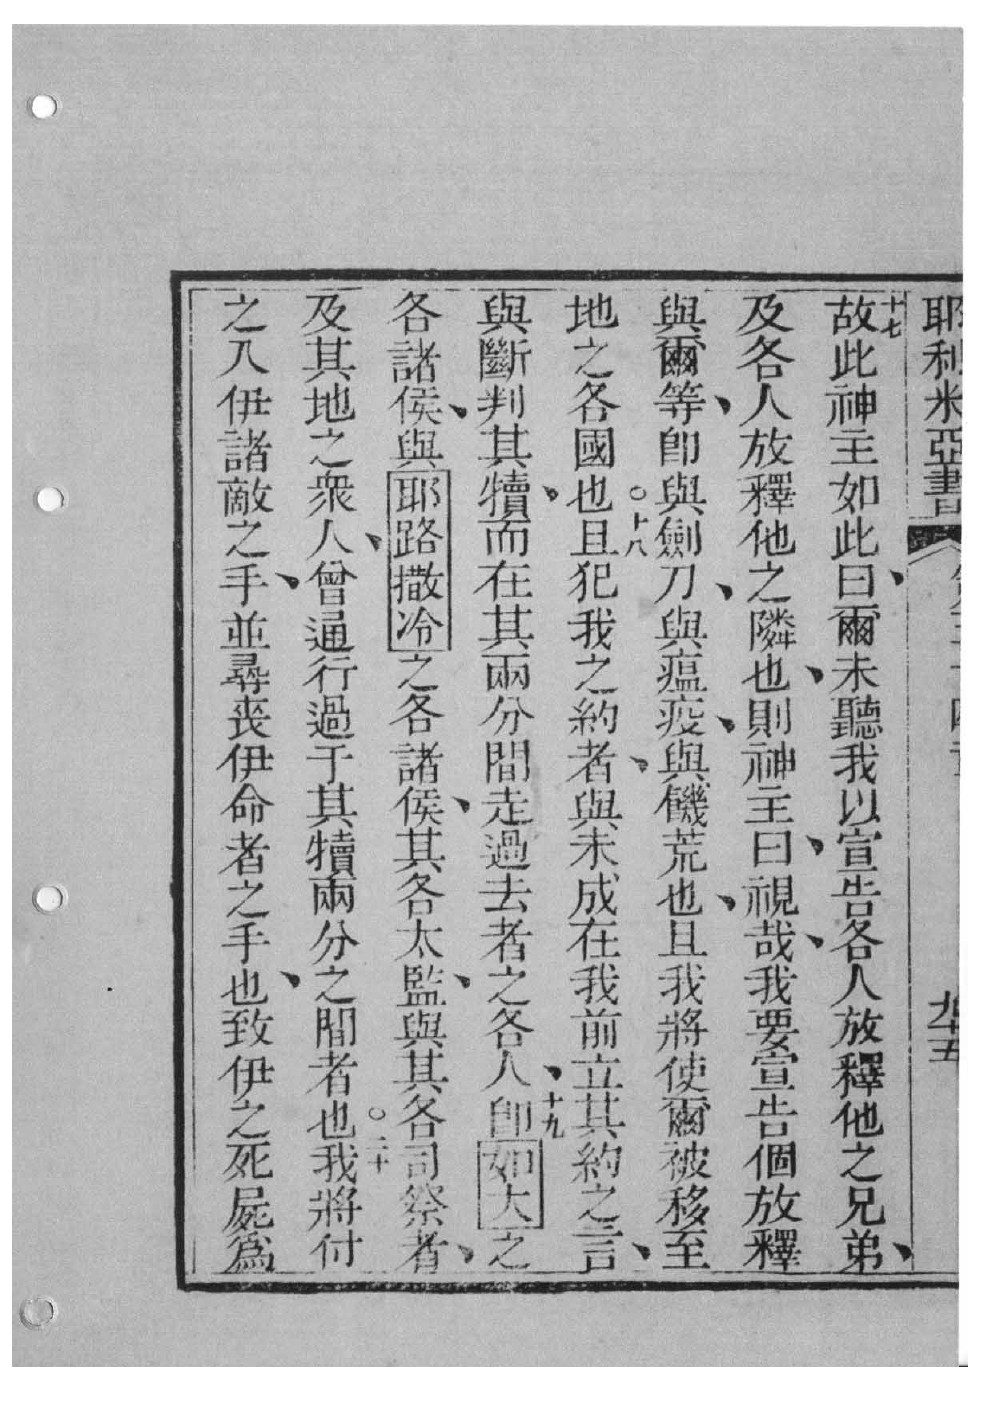 耶利米亞書
九十五
十七故此神主如此曰、爾未聽我以宣告各人放釋他之兄弟、
及各人放釋他之隣也、則神主曰、視哉、我要宣告個放釋
與爾等、卽與劍刀、與瘟疫、與饑荒也、且我將使爾被移至
地之各國也。十八且犯我之約者、與未成在我前立其約之言、
與斷判其犢、而在其兩分間走過去者之各人、十九卽如大之
各諸侯、與耶路撒冷之各諸侯、其各太監、與其各司祭者、
及其地之衆人、曾通行過于其犢兩分之間者也。二十我將付
之入伊諸敵之手、並尋喪伊命者之手也、致伊之死屍爲